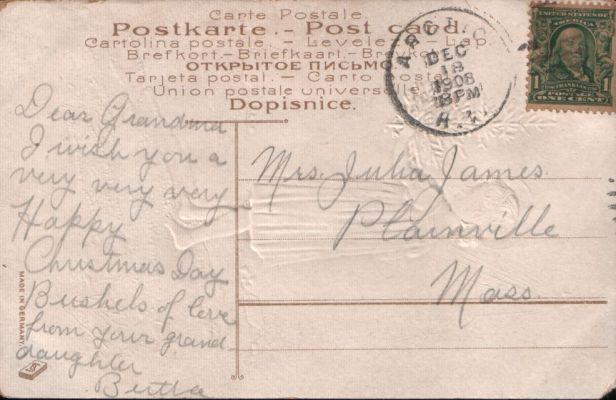 Carte Postale.
Postkarte.- Post card.
Cartolina postale. - Levelező-Lap.
Brefkort.-Briefkaart.-Brevkort.
ОТКРЫТОЕ ПИСЬМО.
Tarjeta postal. - Carto postal.
Union postale universelle.
Dopisnice.
DEC
18
1908
8 PM
R.I.
UNITED STATES OF
AMERICA
1 1
POSTAGE
ONE CENT
Dear Grandma
I wish you a
very very very
Happy
Christmas Day
Bushels of love
from your grand-
daughter
Mrs. Julia James.
Plainville
Mass.
MADE IN GERMANY.